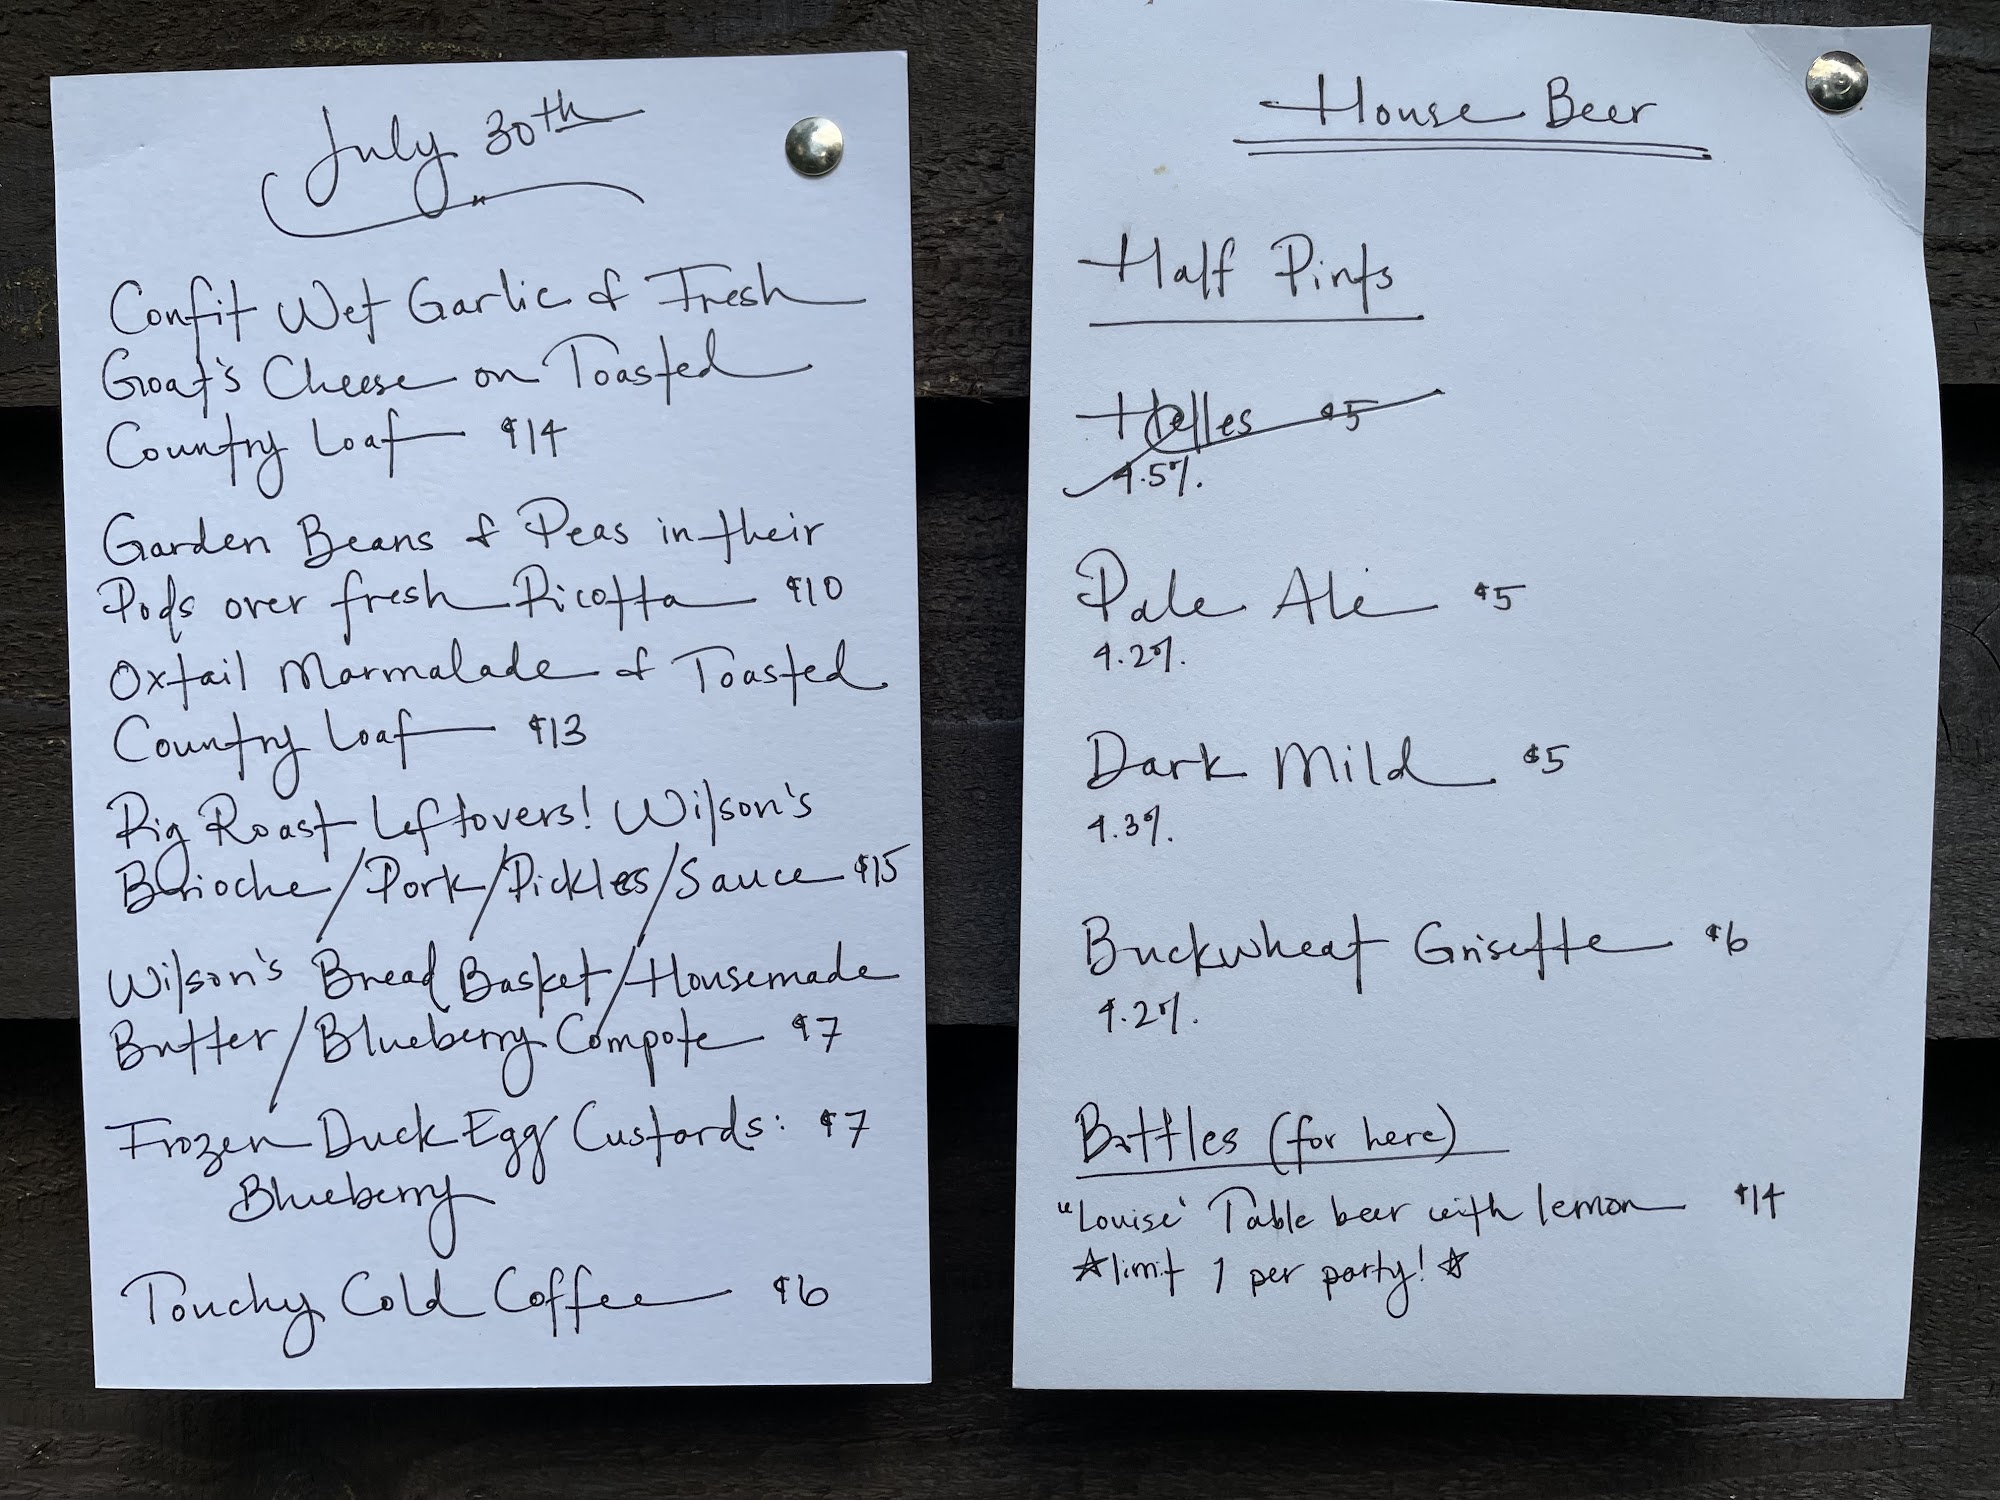 July 30th
Confit Wet Garlic & Fresh
Goat's Cheese on Toasted
Country Loaf $14
Garden Beans & Peas in their
Pods over fresh Ricotta $10
Oxtail Marmalade & Toasted
Country Loaf $13
Pig Roast Leftovers! Wilson's
Brioche/Pork/Pickles/Sauce $15
Wilson's Bread Basket/Housemade
Butter/Blueberry Compote $7
Frozen Duck Egg Custards: $7
Blueberry
Touchy Cold Coffee $6
House Beer
Half Pints
Helles $5
4.5%.
Pale Ale $5
4.2%.
Dark Mild $5
4.3%.
Buckwheat Grisette $6
4.2%.
Bottles (for here)
"Louise" Table beer with lemon $14
☆limit 1 per party!☆